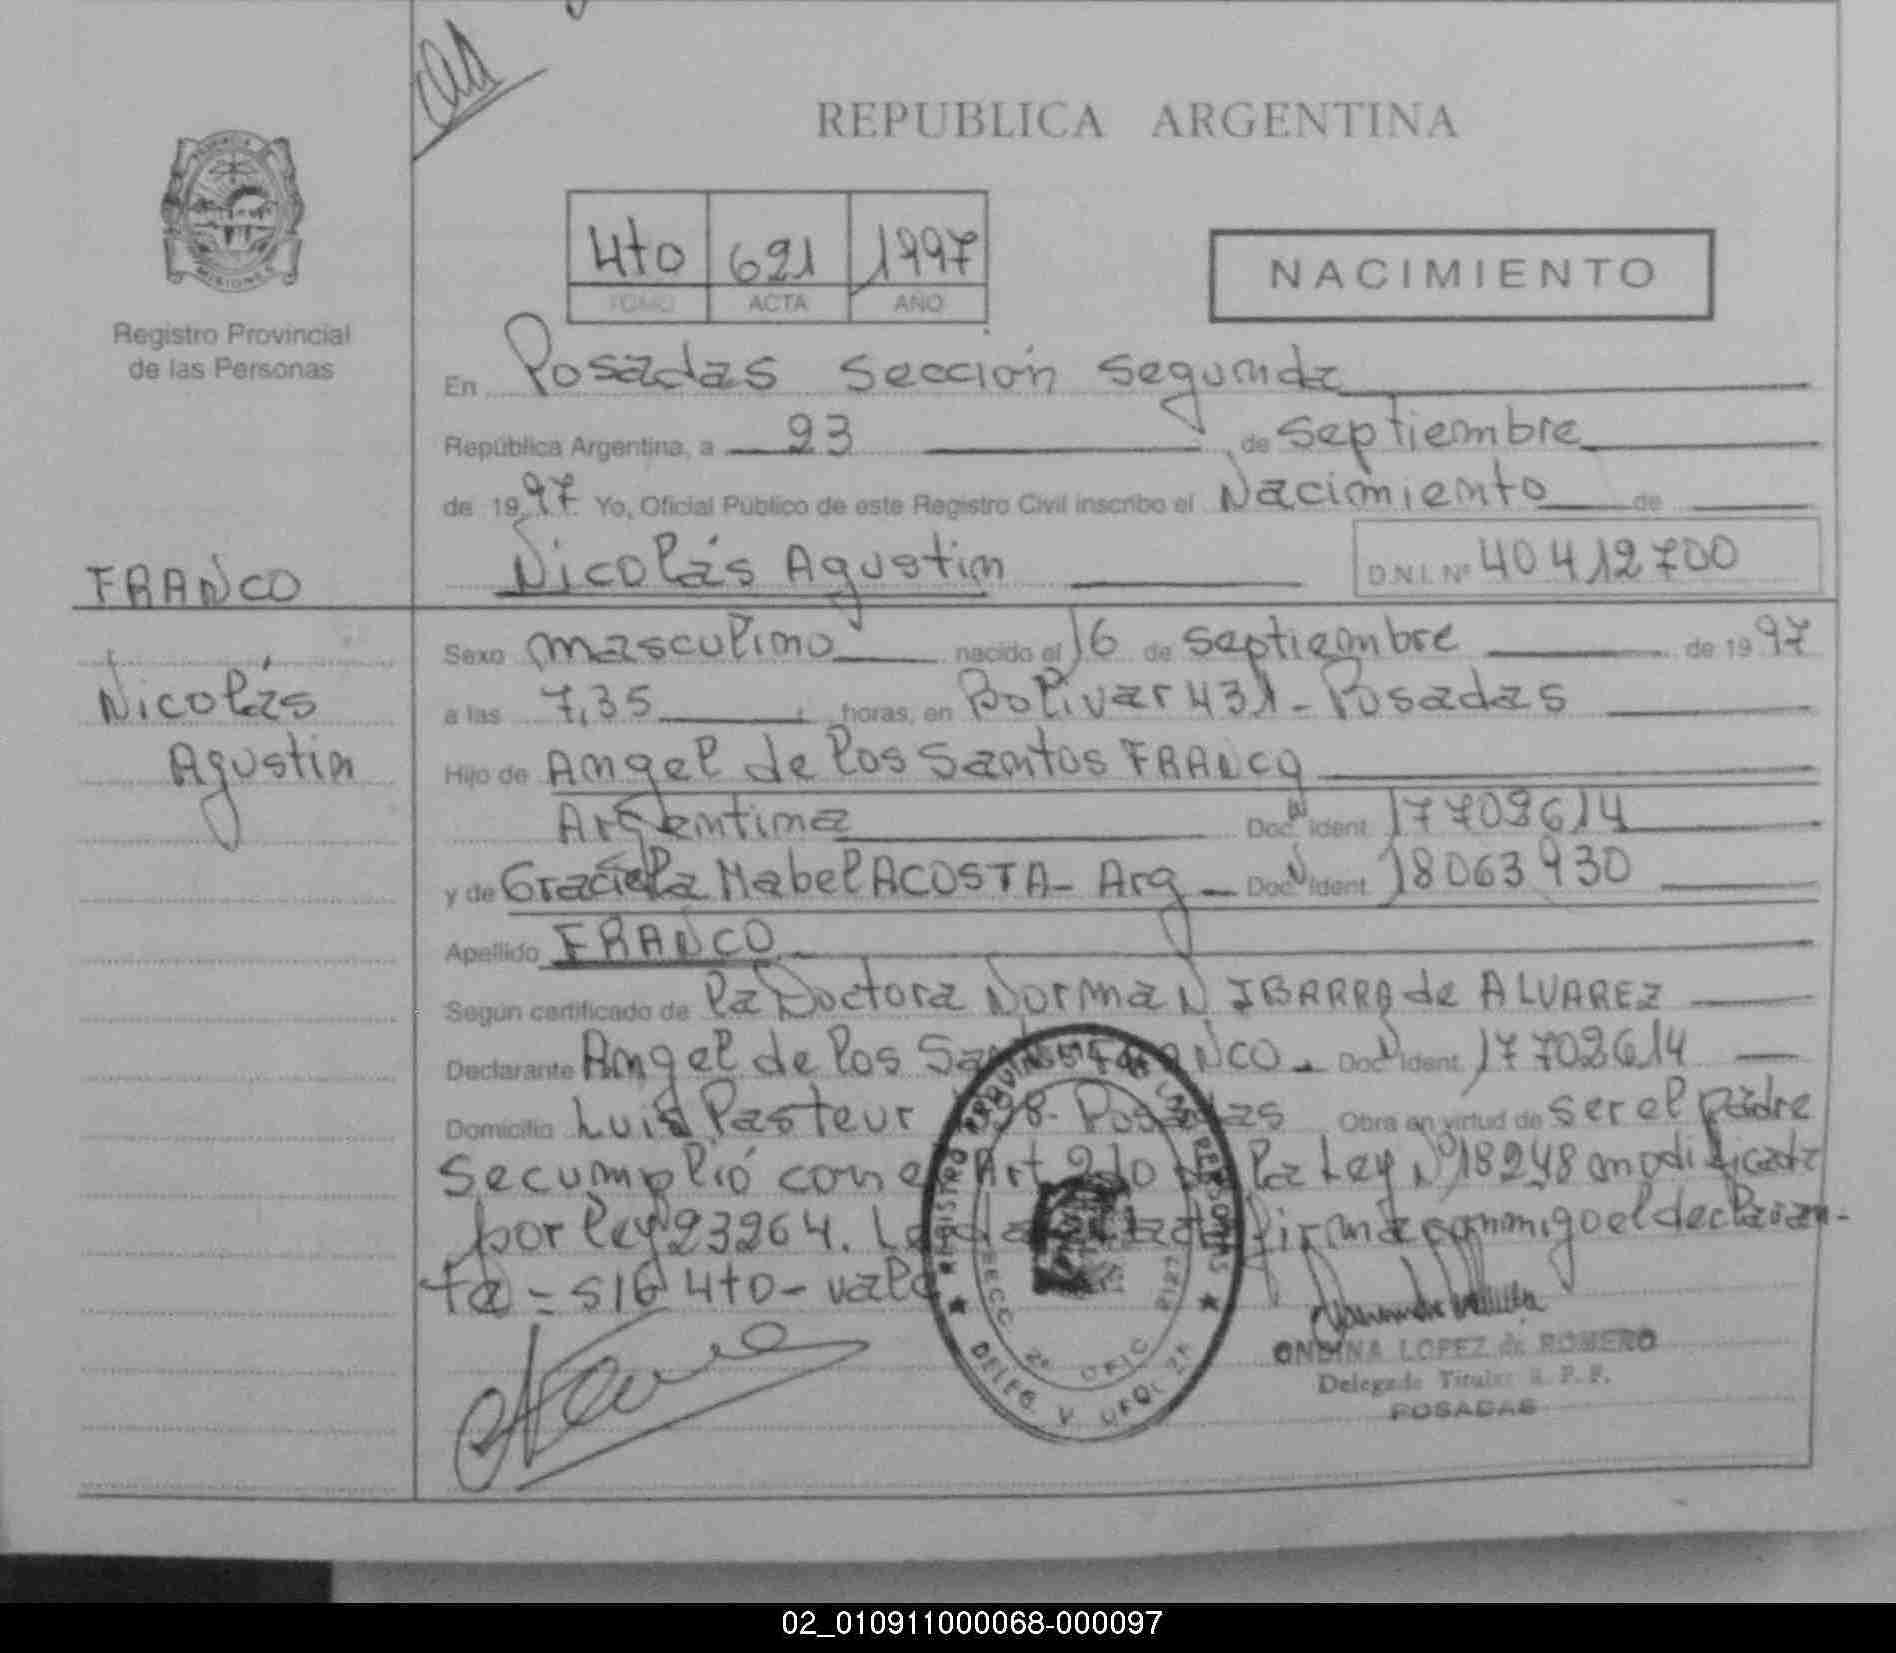 REPUBLICA ARGENTINA
4to 621 1997
TOMO ACTA AÑO
NACIMIENTO
PROVINCIA
MISIONES
Registro Provincial
de las Personas
En Posadas sección segunda
República Argentina, a 23 de septiembre
de 1997 Yo, Oficial Público de este Registro Civil inscribo el Nacimiento de
Nicolás Agustin D.N.I. Nº 40412700
FRANCO
Nicolás
Agustin
Sexo masculino nacido el 16 de septiembre de 1997
a las 7,35 horas, en Bolivar 431 - Posadas
Hijo de Angel de los Santos FRANCO
Argentina Doc. Ident. 17702614
y de Graciela Mabel ACOSTA - Arg - Doc. Ident. 18063930
Apellido FRANCO
Según certificado de la Doctora Norma N IBARRA de ALVAREZ
Declarante Angel de los Santos FRANCO. Doc. Ident. 17702614
Domicilio Luis Pasteur 98 - Posadas Obra en virtud de ser el padre
se cumplió con el Art 2do de la Ley Nº 18248 modificada
por ley 23264. Leida el acta firma conmigo el declaran-
te = S/G 4to - vale
REGISTRO PROVINCIAL DE LAS PERSONAS
SECC 2º
ONDINA LOPEZ de ROMERO
Delegada Titular R. P. P.
POSADAS
02_010911000068-000097